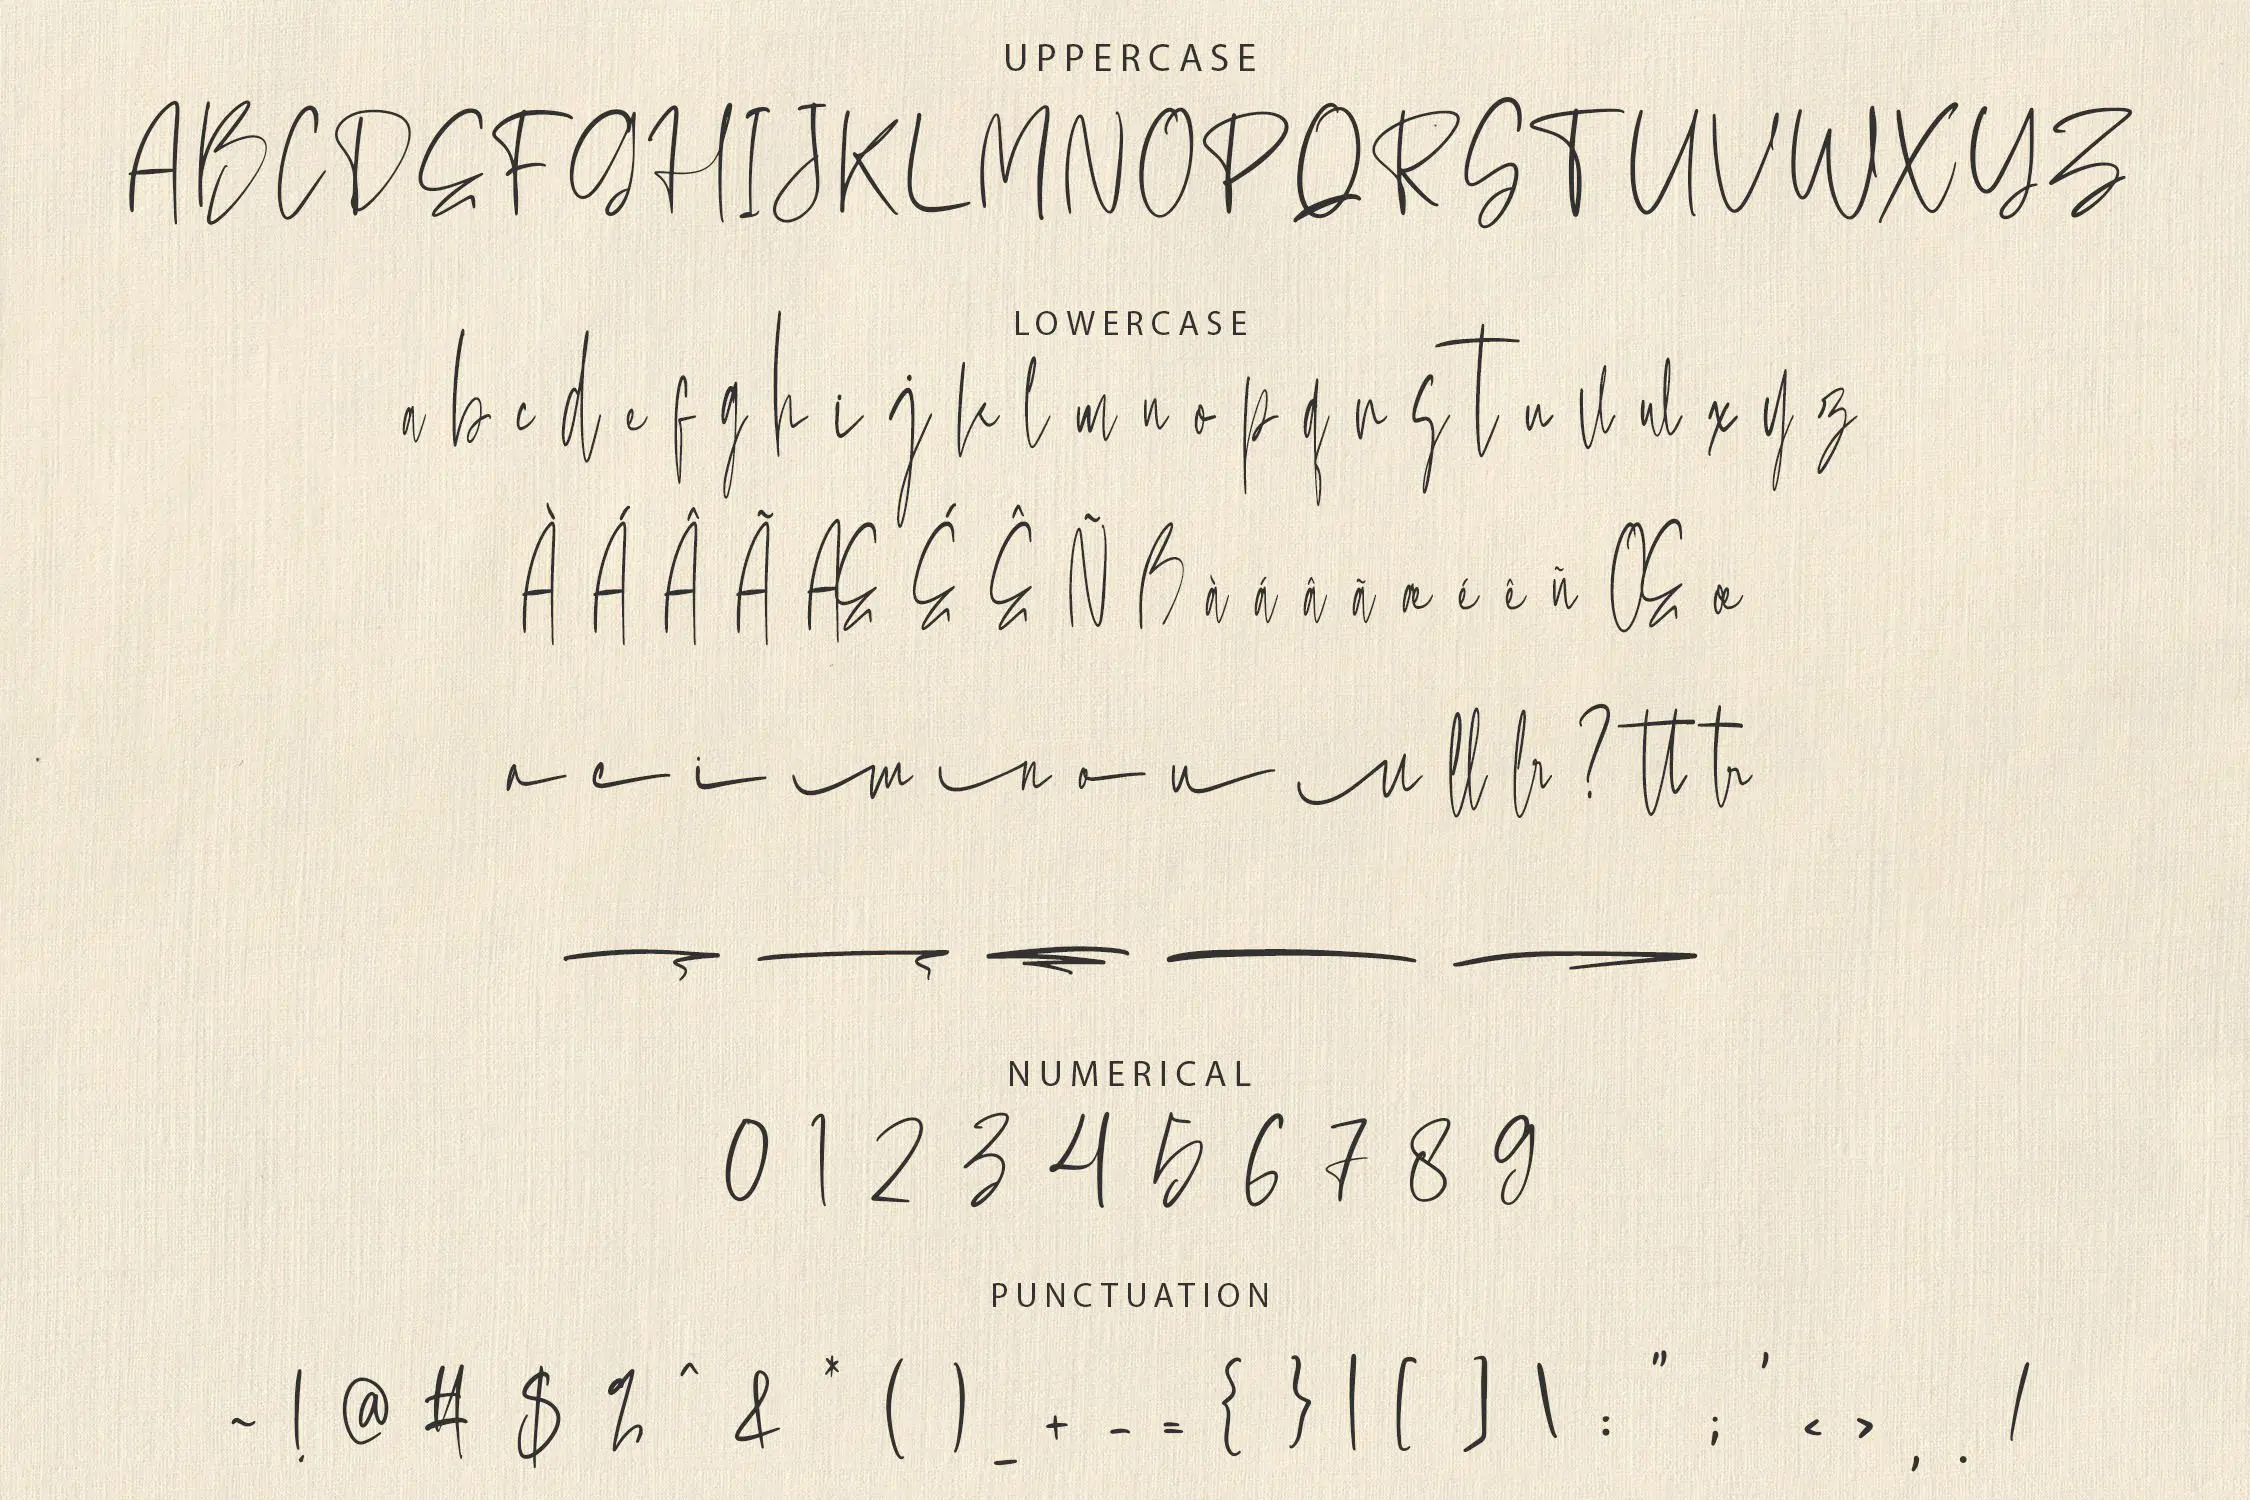 UPPERCASE
ABCDEFGHIJKLMNOPQRSTUVWXYZ
LOWERCASE
a b c d e f g h i j k l m n o p q r s t u v w x y z
À Á Â Ã Æ É Ê Ñ ß à á â ã æ é ê ñ Œ œ
a e i m n o u u ll lr ? tt tr
NUMERICAL
0 1 2 3 4 5 6 7 8 9
PUNCTUATION
~ ! @ # $ % ^ & * ( ) _ + - = { } | [ ] \ : " ; ' < > , . /